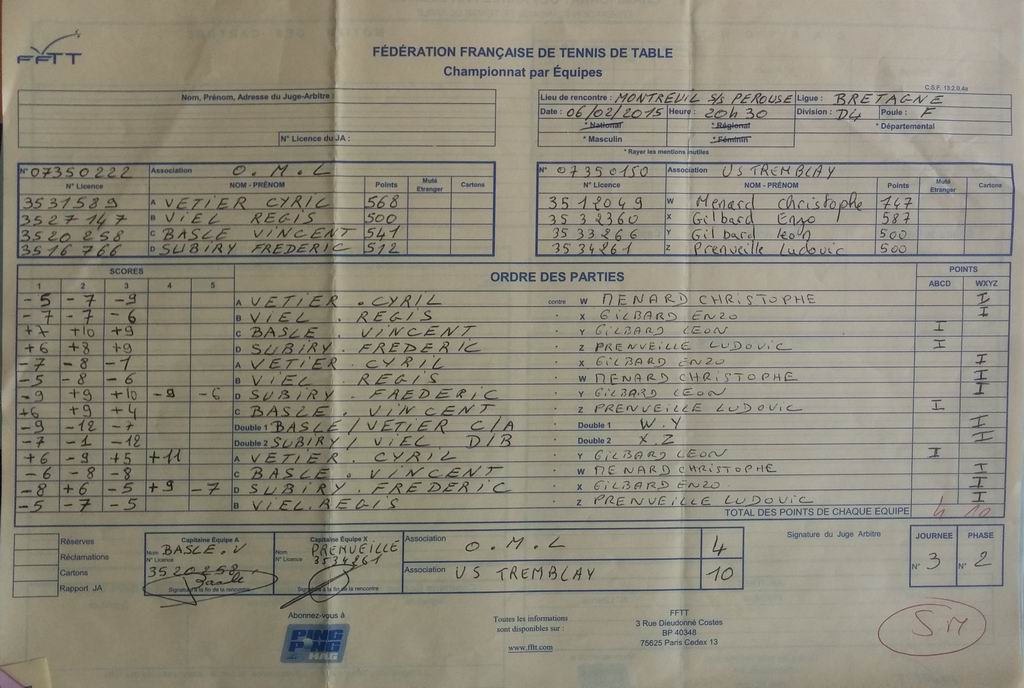 FFTT
FÉDÉRATION FRANÇAISE DE TENNIS DE TABLE
Championnat par Équipes
C.S.F. 13.2.0.4a
Nom, Prénom, Adresse du Juge-Arbitre :
N° Licence du JA :
Lieu de rencontre : MONTREUIL S/S PEROUSE Ligue : BRETAGNE
Date : 06/02/2015 Heure : 20h30 Division : D4 Poule : F
* National * Régional * Départemental
* Masculin * Féminin
* Rayer les mentions inutiles
N° 07350222 Association O.M.L
N° Licence NOM - PRÉNOM Points Muté Etranger Cartons
3531589 A VETIER CYRIL 568
3527147 B VIEL REGIS 500
3520258 C BASLE VINCENT 541
3516766 D SUBIRY FREDERIC 512
N° 07350150 Association US TREMBLAY
N° Licence NOM - PRÉNOM Points Muté Etranger Cartons
3512049 W Menard christophe 747
3532360 X Gilbard Enzo 587
3533266 Y Gilbard leon 500
3534261 Z Prenveille Ludovic 500
SCORES ORDRE DES PARTIES POINTS
1 2 3 4 5 ABCD WXYZ
-5 -7 -9 A VETIER . CYRIL contre W MENARD CHRISTOPHE I
-7 -7 -6 B VIEL . REGIS - X GILBARD ENZO I
+7 +10 +9 C BASLE . VINCENT - Y GILBARD LEON I
+6 +8 +9 D SUBIRY . FREDERIC - Z PRENVEILLE LUDOVIC I
-7 -8 -1 A VETIER . CYRIL - X GILBARD ENZO I
-5 -8 -6 B VIEL . REGIS - W MENARD CHRISTOPHE I
-9 +9 +10 -9 -6 D SUBIRY . FREDERIC - Y GILBARD LEON I
+6 +9 +4 C BASLE . VINCENT - Z PRENVEILLE LUDOVIC I
-9 -12 -7 Double 1 BASLE/VETIER C/A Double 1 W.Y I
-7 -1 -12 Double 2 SUBIRY/VIEL D/B Double 2 X.Z I
+6 -9 +5 +11 A VETIER . CYRIL - Y GILBARD LEON I
-6 -8 -8 C BASLE . VINCENT - W MENARD CHRISTOPHE I
-8 +6 -5 +9 -7 D SUBIRY . FREDERIC - X GILBARD ENZO I
-5 -7 -5 B VIEL.REGIS - Z PRENVEILLE LUDOVIC I
TOTAL DES POINTS DE CHAQUE EQUIPE 4 10
Réserves
Réclamations
Cartons
Rapport JA
Capitaine Équipe A
Nom BASLE.V
N° Licence
3520258
Basle
Signature à la fin de la rencontre
Capitaine Équipe X
Nom PRENVEILLE
N° Licence 3534261
Signature à la fin de la rencontre
Association O.M.L 4
Association US TREMBLAY 10
Signature du Juge Arbitre
JOURNEE PHASE
N° 3 N° 2
Abonnez-vous à
PING PONG MAG
Toutes les informations
sont disponibles sur :
www.fftt.com
FFTT
3 Rue Dieudonné Costes
BP 40348
75625 Paris Cedex 13
SM